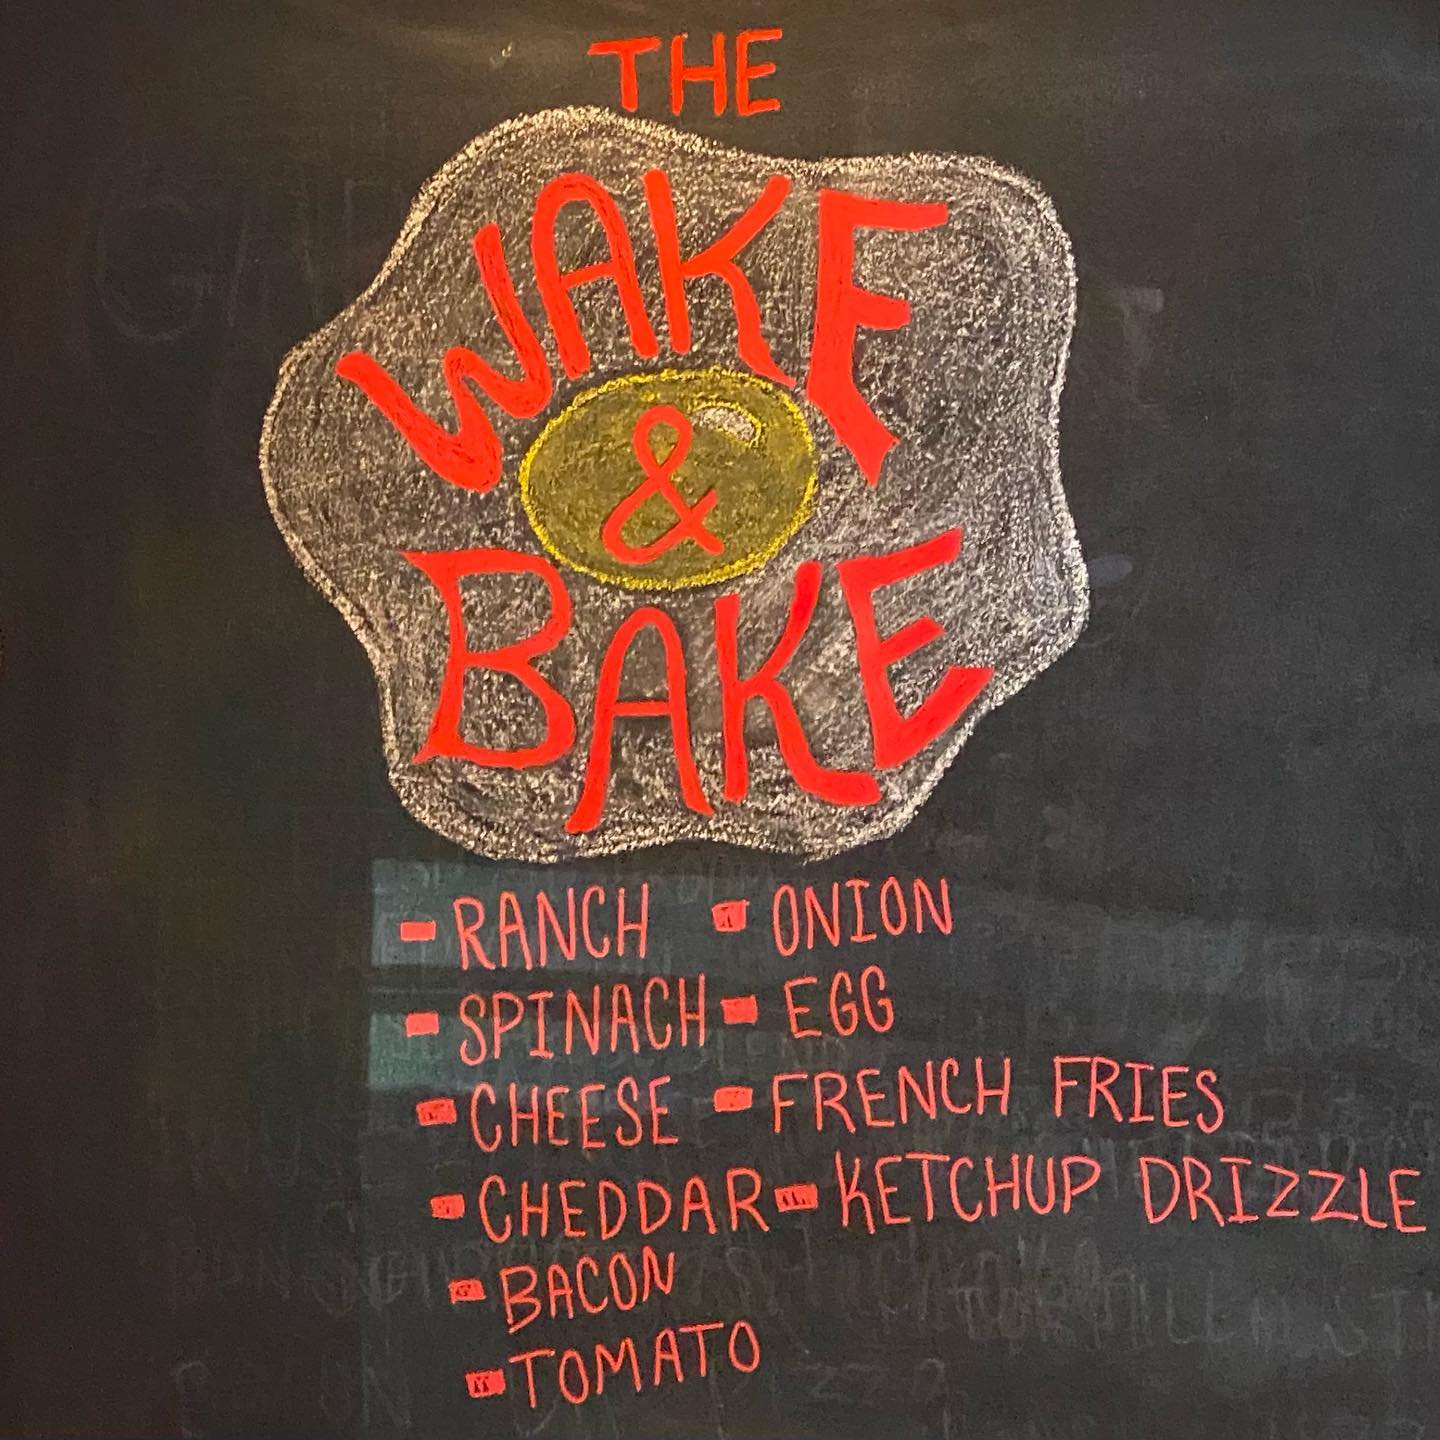 THE
WAKE
&
BAKE
- RANCH
- SPINACH
- CHEESE
- CHEDDAR
- BACON
- TOMATO
- ONION
- EGG
- FRENCH FRIES
- KETCHUP DRIZZLE